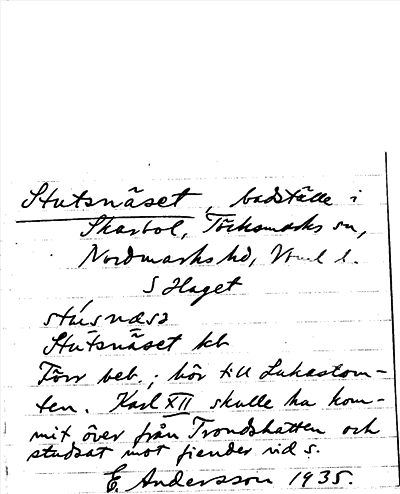 Stutsnäset, badställe i
Skarbol, Töcksmarks sn,
Nordmarks hd, Vrml l.
S Haget
stu̇́snæsə
Stutsnäset kb
Förr beb.; hör till Lukastom-
ten. Karl XII skulle ha kom-
mit över från Trondshatten och
studsat mot fiender vid S.
E. Andersson 1935.